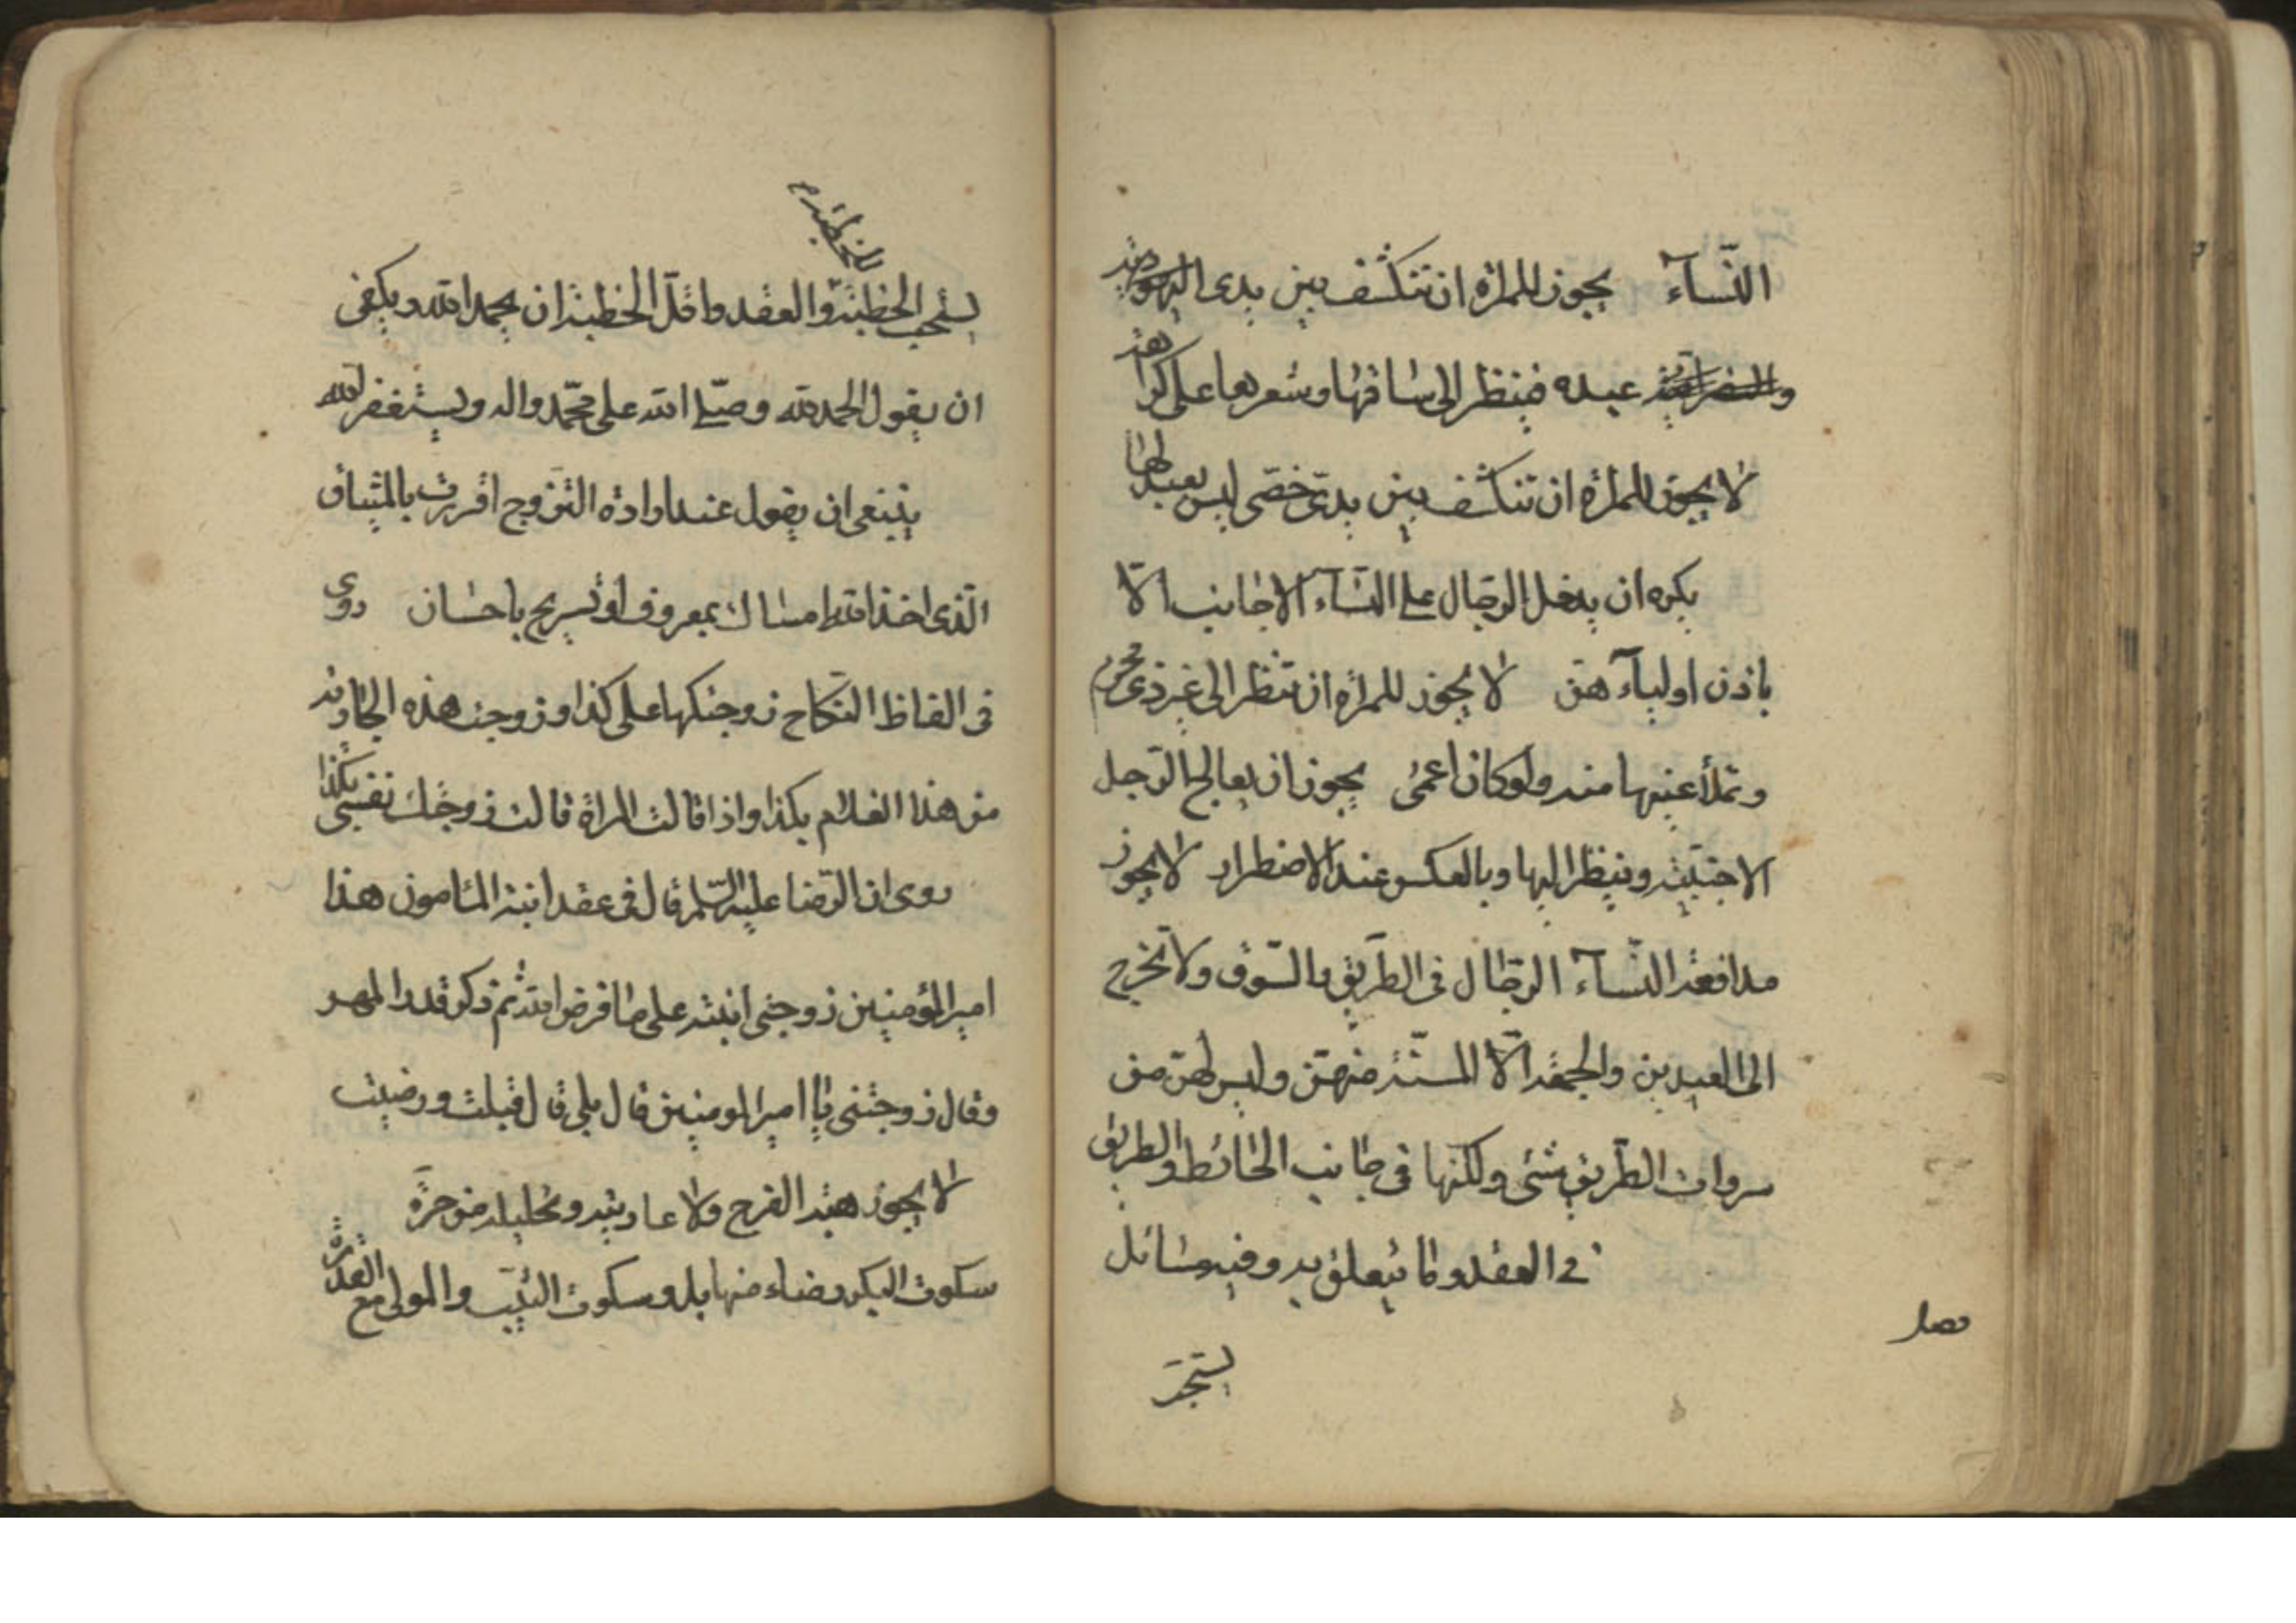 النّسآء يجوز للمراة ان تنكشف بين يدى اليهودية
والنصرانية عبده فينظر الى ساقها وشعرها على كراهة
لا يجوز للمراة ان تنكشف بين يدى خصى ليس بعبد لها
يكره ان يدخل الرجال على النسآء الاجانب الّا
باذن اوليآءهن لا يجوز للمراة ان تنظر الى غير ذى محرم
وتملأ عينها منه ولو كان اعمى يجوز ان يعالج الرّجل
الاجنبيّة وينظر اليها وبالعكس عند الاضطرار لا يجوز
مدافعة النّسآء الرجال فى الطريق والسّوق ولا تخرج
الى العيدين والجمعة الّا المسنّة منهنّ وليس لهنّ من
سروات الطّريق شئ ولكنّها فى جانب الحائط والطريق
فى العقد وما يتعلق به وفيه مسائل
فصل
يستحبّ
للخطبة
يستحب الخطبة والعقد واقلّ الخطبة ان يحمد الله ويكفى
ان يقول الحمد لله وصلّى الله على محمّد واله ويستغفر الله
ينبغى ان يقول عند ارادة التزوج اقررت بالميثاق
الّذى اخذ الله امساك بمعروف او تسريح باحسان روى
فى الفاظ النّكاح زوجتكها على كذا وزوجت هذه الجارية
من هذا الغلام بكذا واذا قالت المراة قالت زوجتك نفسى بكذا
روى ان الرّضا عليه السّلم قال فى عقد ابنة المأمون هذا
امير المؤمنين زوجنى ابنته على ما فرض الله ثم ذكر قدر المهر
وقال زوجتنى يا امير المومنين قال بلى قال قبلت ورضيت
لا يجوز هبة الفرج ولا عاريته وتحليله من حرّة
سكوت البكر رضاء منها بل وسكوت الثيّب والمولى مع القدرة